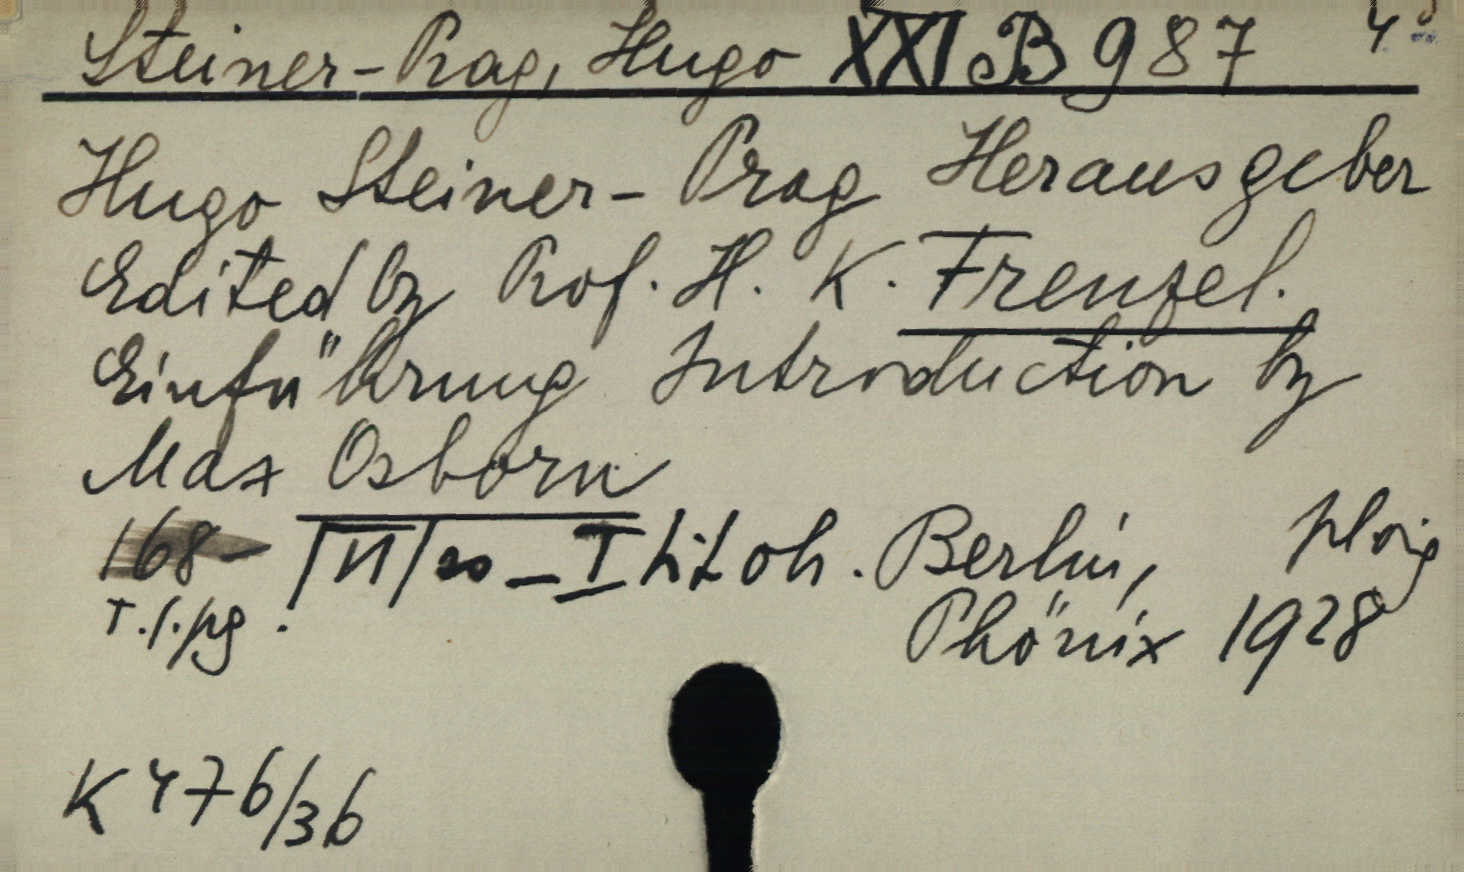 Steiner-Prag, Hugo XXI B 987 4°
Hugo Steiner-Prag Herausgeber
Edited by Prof. H. K. Frenzel.
Einführung Introduction by
Max Osborn
168- Lith. Berlin,
Phönix 1928
K 476/36